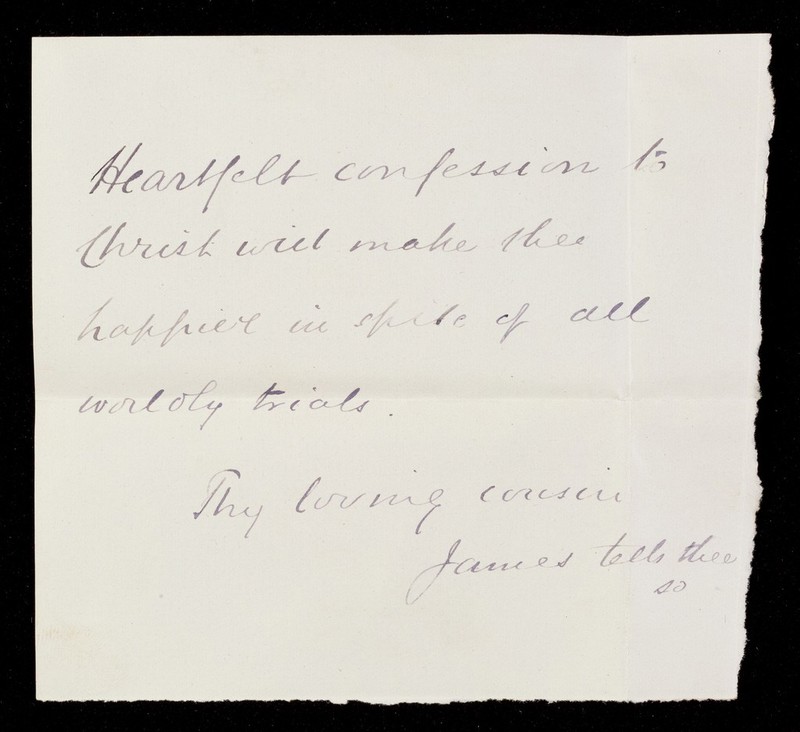 Heartfelt confession to
Christ will make thee
happier in spite of all
worldly trials.
Thy loving cousin
James tells thee
so